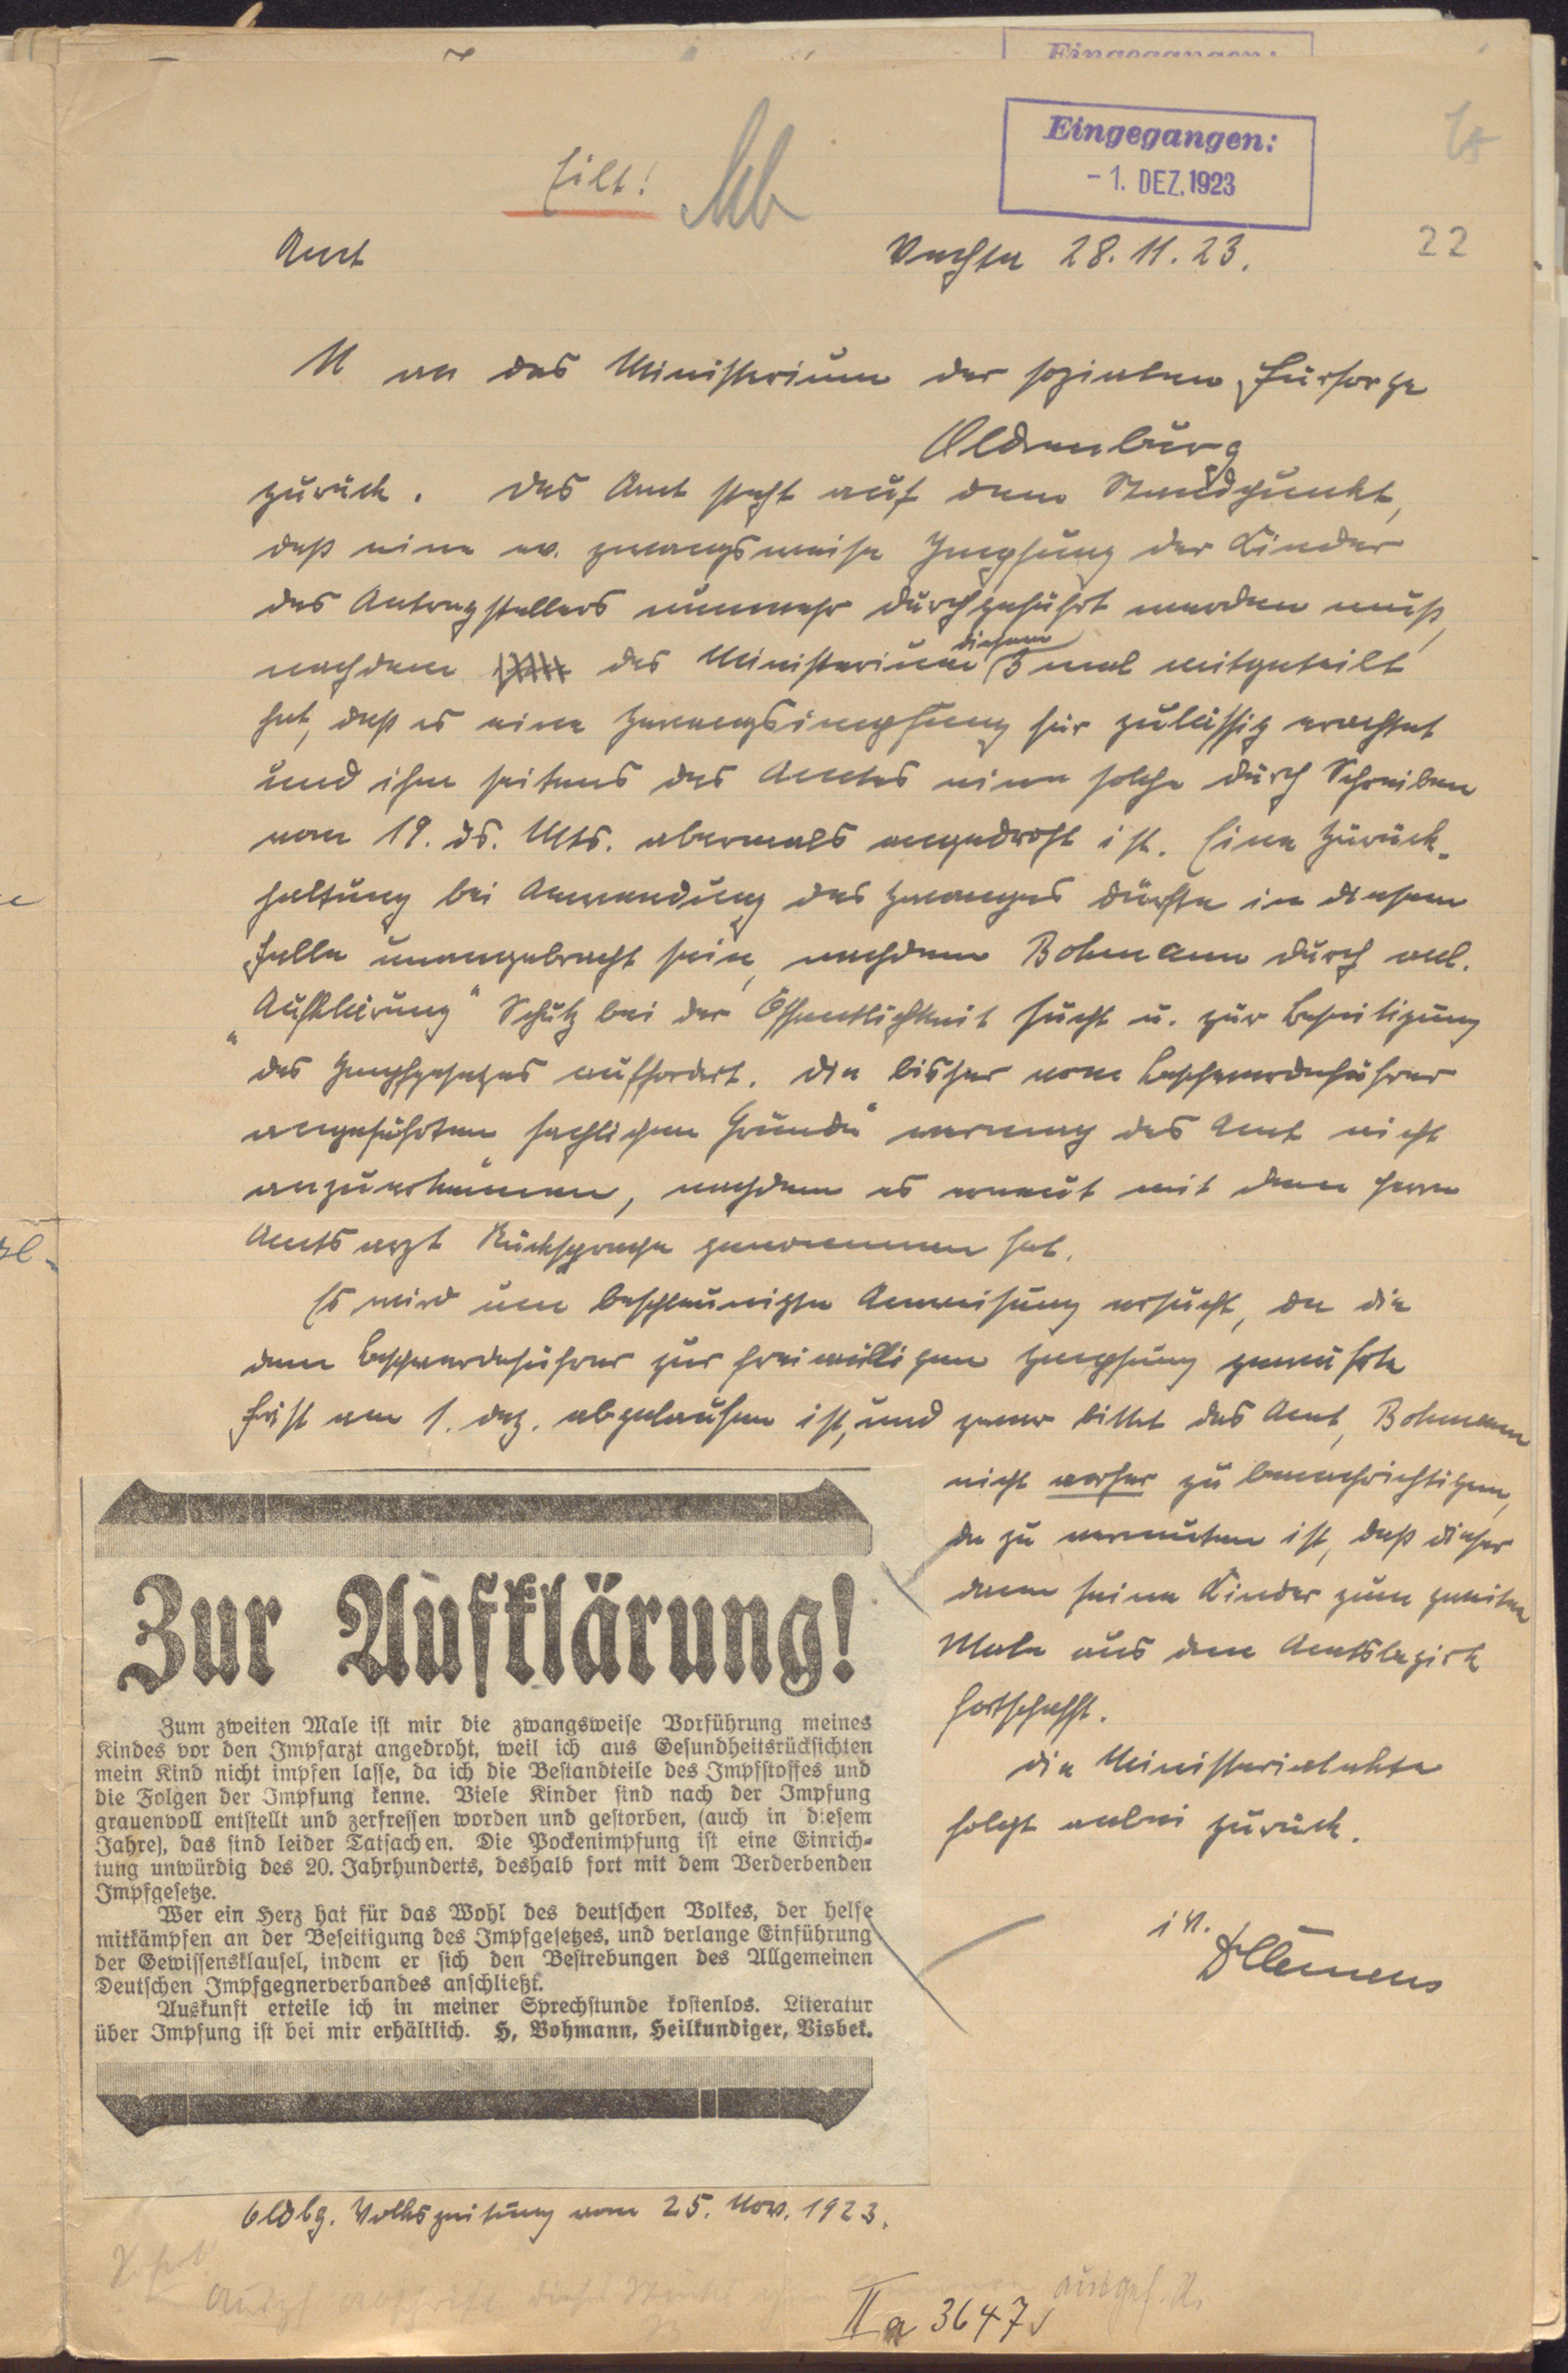 Eingegangen:
Eingegangen:
- 1. DEZ. 1923
Eilt!
22
Amt
Vechta 28.11.23.
U an das Ministerium der sozialen Fürsorge
Oldenburg
zurück. Das Amt steht auf dem Standpunkt,
daß eine ev. zwangsweise Impfung der Kinder
des Antragstellers nunmehr durchgeführt werden muß,
nachdem das Ministerium diesem 3 mal mitgeteilt
hat, daß es eine Zwangsimpfung für zulässig erachtet
und ihm seitens des Amtes eine solche durch Schreiben
vom 19. ds. Mts. abermals angedroht ist. Eine Zurück-
haltung bei Anwendung des Zwanges dürfte in diesem
Falle unangebracht sein, nachdem Bohmann durch anl.
„Aufklärung" Schutz bei der Öffentlichkeit sucht u. zur Beseitigung
des Impfgesetzes auffordert. Die bisher vom Beschwerdeführer
angeführten sachlichen Gründe" vermag das Amt nicht
anzuerkennen, nachdem es erneut mit dem Herrn
Amtsarzt Rücksprache genommen hat.
Es wird um beschleunigte Anweisung ersucht, da die
dem Beschwerdeführer zur freiwilligen Impfung gewährte
Frist am 1. Dez. abgelaufen ist, und zwar bittet das Amt, Bohmann
nicht vorher zu benachrichtigen,
da zu vermuten ist, daß dieser
dann seine Kinder zum zweiten
Male aus dem Amtsbezirk
fortschafft.
Die Ministerialakte
folgt anbei zurück.
i.V.
Zur Aufklärung!
Zum zweiten Male ist mir die zwangsweise Vorführung meines
Kindes vor den Impfarzt angedroht, weil ich aus Gesundheitsrücksichten
mein Kind nicht impfen lasse, da ich die Bestandteile des Impfstoffes und
die Folgen der Impfung kenne. Viele Kinder sind nach der Impfung
grauenvoll entstellt und zerfressen worden und gestorben, (auch in diesem
Jahre), das sind leider Tatsachen. Die Pockenimpfung ist eine Einrich-
tung unwürdig des 20. Jahrhunderts, deshalb fort mit dem Verderbenden
Impfgesetze.
Wer ein Herz hat für das Wohl des deutschen Volkes, der helfe
mitkämpfen an der Beseitigung des Impfgesetzes, und verlange Einführung
der Gewissensklausel, indem er sich den Bestrebungen des Allgemeinen
Deutschen Impfgegnerverbandes anschließt.
Auskunft erteile ich in meiner Sprechstunde kostenlos. Literatur
über Impfung ist bei mir erhältlich. H. Bohmann, Heilkundiger, Visbek.
Oldbg. Volkszeitung vom 25. Nov. 1923.
II a 3647